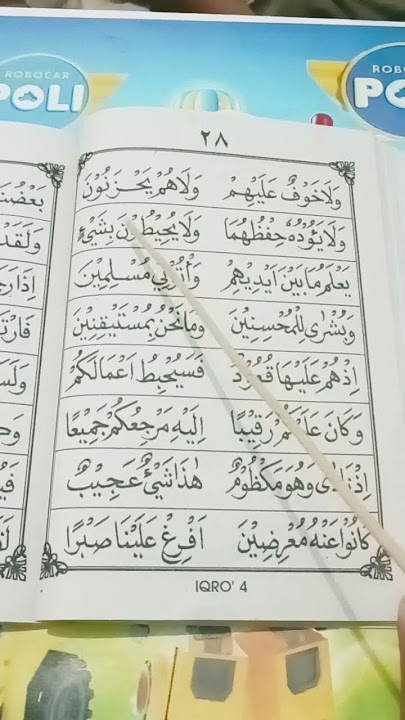 ROBOCAR
POLI
ROBO
PO
٢٨
وَلَاخَوْفٌ عَلَيْهِمْ وَلَاهُمْ يَحْزَنُوْنَ
وَلَا يَـُٔوْدُهٗ حِفْظُهُمَا وَلَا يُحِيْطُوْنَ بِشَيْءٍ
يَعْلَمُ مَابَيْنَ اَيْدِيْهِمْ وَأْتُوْنِيْ مُسْلِمِيْنَ
وَبُشْرٰى لِلْمُحْسِنِيْنَ وَمَانَحْنُ بِمُسْتَيْقِنِيْنَ
اِذْهُمْ عَلَيْهَا قُعُوْدٌ فَسَيُحْبِطُ اَعْمَالَكُمْ
وَكَانَ عَلَيْكُمْ رَقِيْبًا اِلَيْهِ مَرْجِعُكُمْ جَمِيْعًا
اِذْنَادٰى وَهُوَمَكْظُوْمٌ هٰذَا شَيْءٌ عَجِيْبٌ
كَانُوْا عَنْهُ مُعْرِضِيْنَ اَفْرِغْ عَلَيْنَا صَبْرًا
IQRO' 4